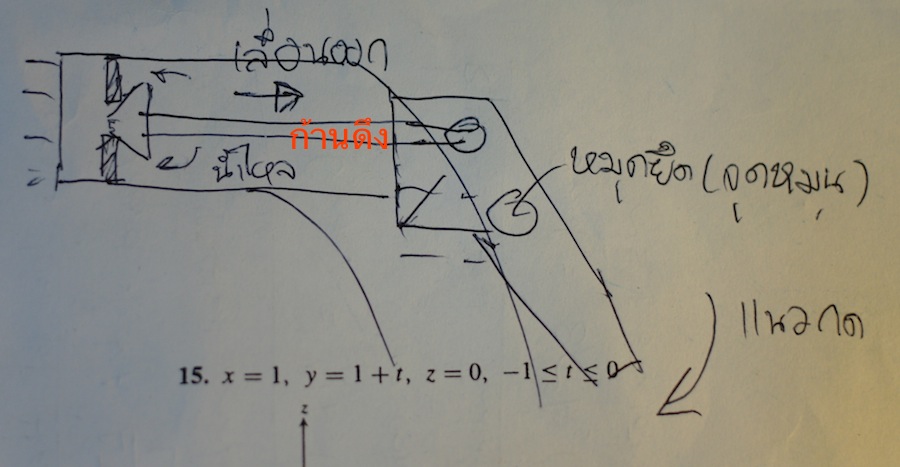 เลื่อนออก
ก้านดึง
น้ำไหล
หมุดยึด (จุดหมุน)
แนวกด
15. x = 1, y = 1 + t, z = 0, −1 ≤ t ≤ 0
z